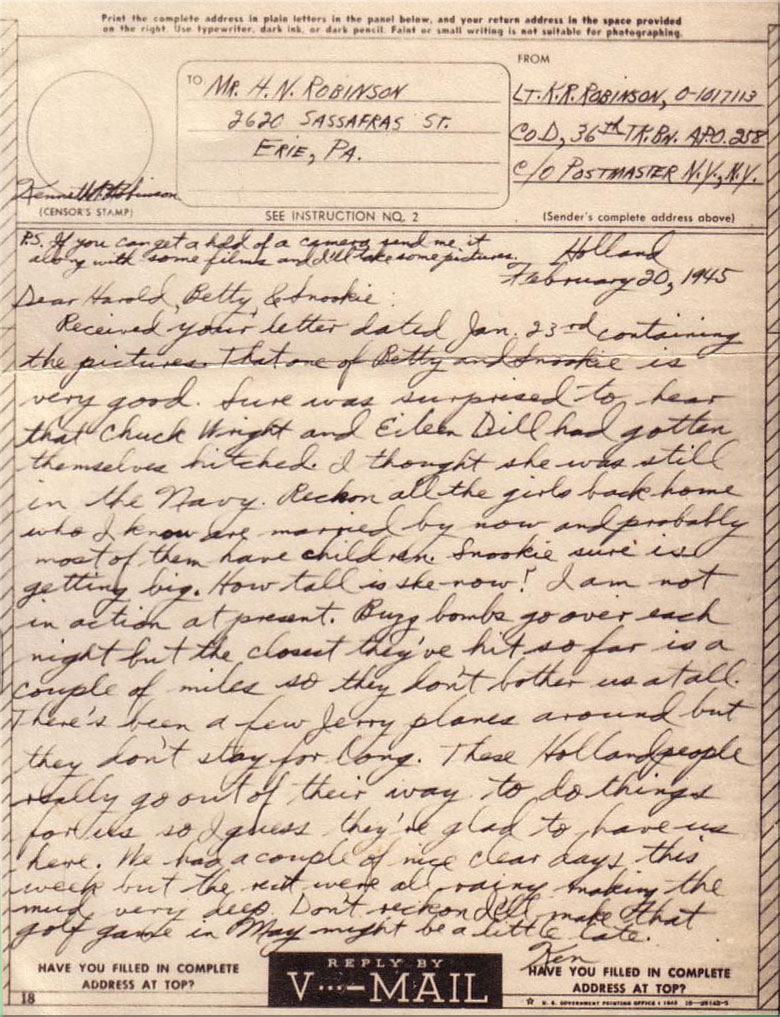 Print the complete address in plain letters in the panel below, and your return address in the space provided
on the right. Use typewriter, dark ink, or dark pencil. Faint or small writing is not suitable for photographing.
TO
MR. H. N. ROBINSON
2620 SASSAFRAS ST.
ERIE, PA.
FROM
LT. K.R. ROBINSON, O-1017113
CO D, 36th TK. BN. APO. 258
C/O POSTMASTER N.Y., N.Y.
Kenneth R. Robinson
(CENSOR'S STAMP)
SEE INSTRUCTION NO. 2
(Sender's complete address above)
P.S. If you can get a hold of a camera send me it
along with some films and I'll take some pictures.
Holland
February 20, 1945
Dear Harold, Betty, & Snookie:
Received your letter dated Jan. 23rd containing
the pictures. That one of Betty and Snookie is
very good. Sure was surprised to hear
that Chuck Wright and Eileen Dill had gotten
themselves hitched. I thought she was still
in the Navy. Reckon all the girls back home
who I know are married by now and probably
most of them have children. Snookie sure is
getting big. How tall is she now? I am not
in action at present. Buzz bombs go over each
night but the closest they've hit so far is a
couple of miles so they don't bother us atall.
There's been a few Jerry planes around but
they don't stay for long. These Holland people
really go out of their way to do things
for us so I guess they're glad to have us
here. We had a couple of nice clear days this
week but the rest were all rainy making the
mud very deep. Don't reckon I'll make that
golf game in May might be a little late.
Ken
HAVE YOU FILLED IN COMPLETE
ADDRESS AT TOP?
REPLY BY
V···—MAIL
HAVE YOU FILLED IN COMPLETE
ADDRESS AT TOP?
18
☆ U. S. GOVERNMENT PRINTING OFFICE